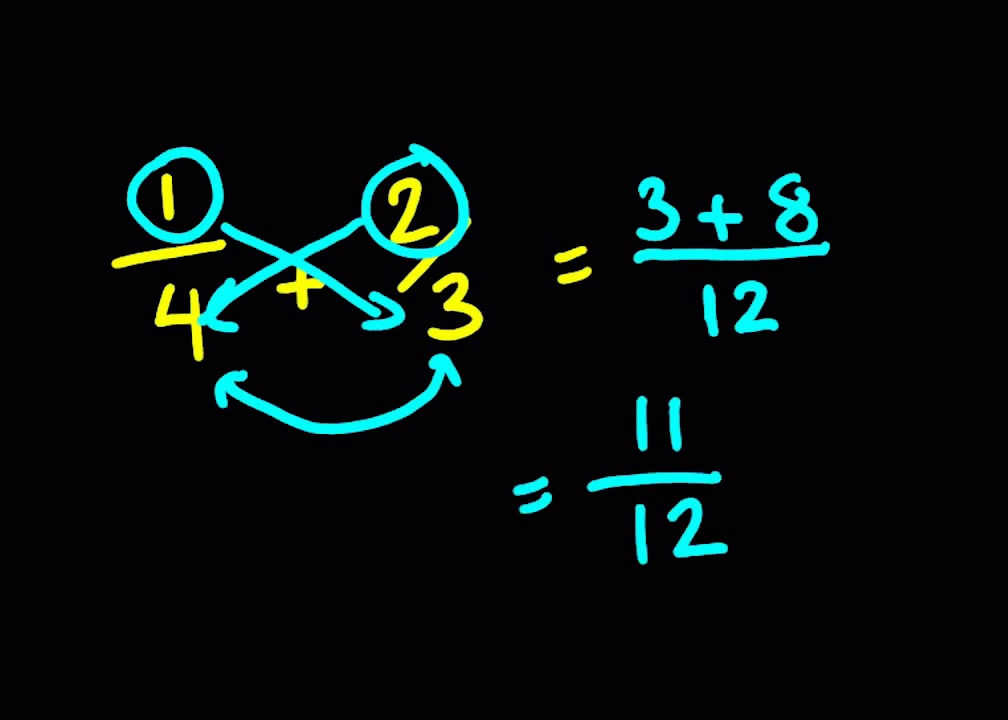 1/4 + 2/3 = (3 + 8)/12
= 11/12